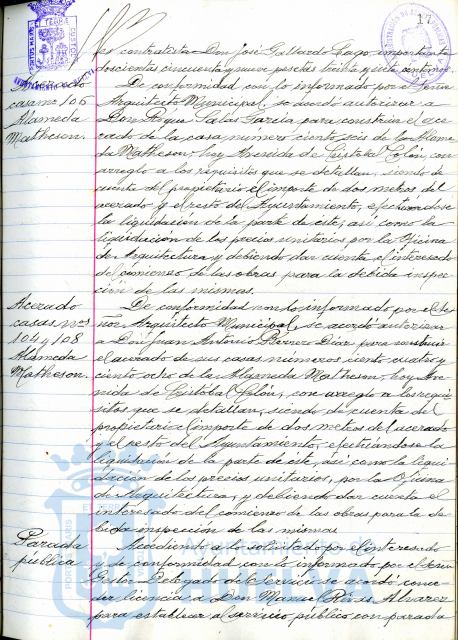 17
por contratista Don José Gallardo Lago, importante
doscientas cincuenta y nueve pesetas treinta y siete céntimos.
Acerado
casa nº 106
Alameda
Matheson.
De conformidad con lo informado por el Señor
Arquitecto Municipal, se acordó autorizar a
Don Roque Salas García para construir el ace-
rado de la casa número ciento seis de la Alame-
da Matheson, hoy Avenida de Cristobal Colón, con
arreglo a los requisitos que se detallan, siendo de
cuenta del propietario el importe de dos metros del
acerado y el resto del Ayuntamiento, efectuandose
la liquidación de la parte de éste, así como la
liquidación de los precios unitarios por la Oficina
de Arquitectura y debiendo dar cuenta el interesado
del comienzo de las obras para la debida inspec-
ción de las mismas.
Acerado
casas nºs
104 y 108
Alameda
Matheson.
De conformidad con lo informado por el Se-
ñor Arquitecto Municipal, se acordó autorizar
a Don Juan Antonio Borrero Díaz para construir
el acerado de sus casas números ciento cuatro y
ciento ocho de la Alameda Matheson, hoy Ave-
nida de Cristobal Colón, con arreglo a los requi-
sitos que se detallan, siendo de cuenta del
propietario el importe de dos metros del acerado
y el resto del Ayuntamiento, efectuándose la
liquidación de la parte de éste, así como la liqui-
dación de los precios unitarios, por la Oficina
de Arquitectura, y debiendo dar cuenta el
interesado del comienzo de las obras para la de-
bida inspección de las mismas
Parada
pública
Accediendo a lo solicitado por el interesado
y de conformidad con lo informado por el Señor
Gestor Delegado del Servicio se acordó conce-
der licencia a Don Manuel Rivas Alvarez
para establecer al servicio público con parada
Ayuntamiento de